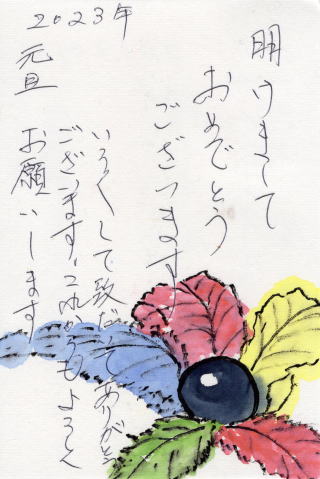 明けまして
おめでとう
ございます
いろいろして致だいてありがとう
ございます。これからもよろしく
お願いします
2023年
元旦